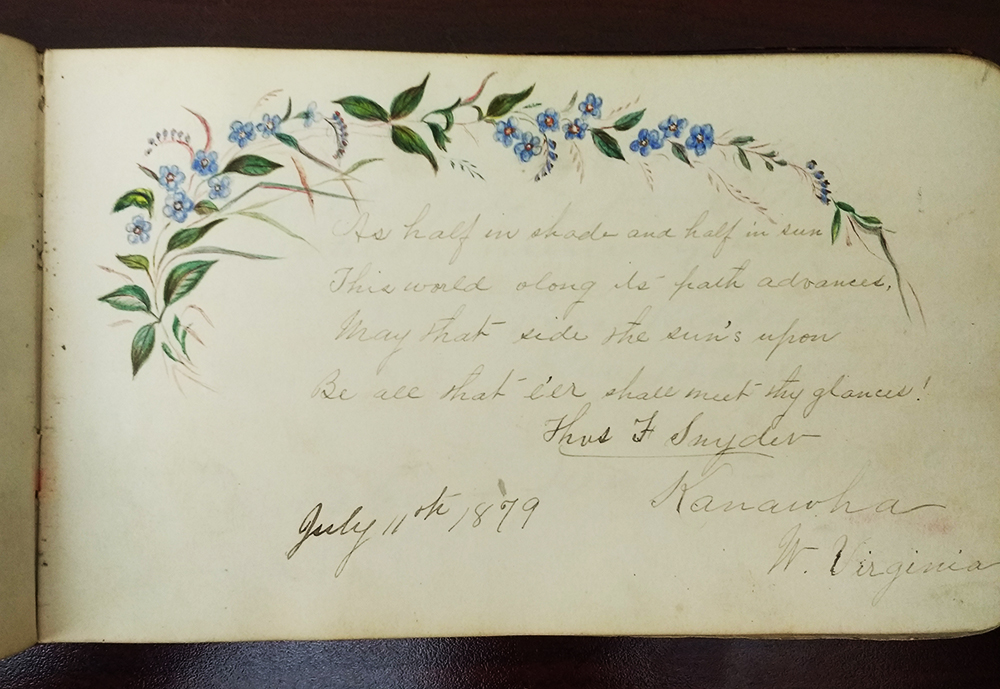 As half in shade and half in sun
This world along its path advances,
May that side the sun's upon
Be all that e'er shall meet thy glances!
Thos F Snyder
Kanawha
W. Virginia
July 11th 1879